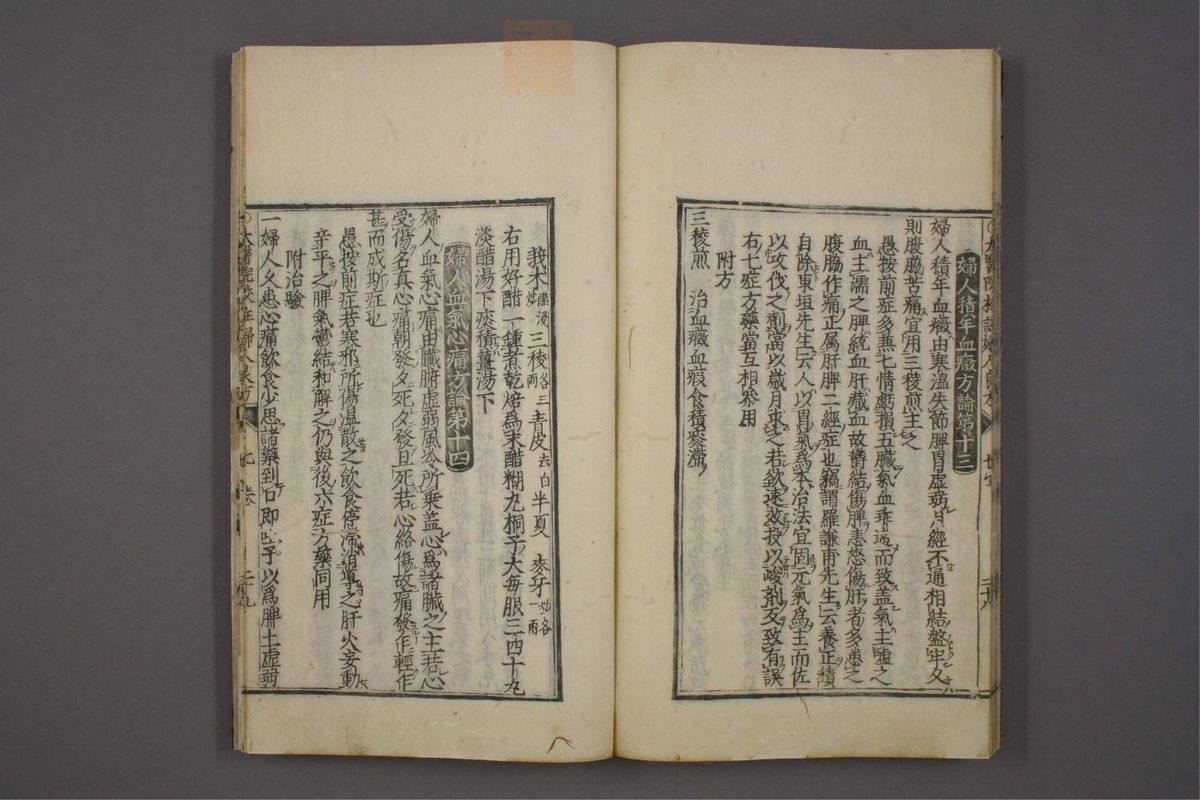 婦人積年血癥方論第十三
婦人積年血癥由寒溫失節脾胃虛弱月經不通相結盤牢久
則腹脇苦痛宜用三稜煎主之
愚按前症多兼七情虧損五臟氣血乖違而致盖氣主噓之
血主濡之脾統血肝藏血故鬱結傷脾恚怒傷肝者多患之
腹脇作痛正属肝脾二經症也竊謂羅謙甫先生云養正積
自除東垣先生云人以胃氣爲本治法宜固元氣爲主而佐
以攻伐之劑當以歲月求之若欲速效投以峻剤反致有誤
右七症方藥當互相參用
附方
三稜煎 治血癥血瘕食積痰滯
莪朮 三稜各三兩 青皮去白 半夏 麥牙炒各一兩
右用好醋一鍾煮乾焙爲末醋糊丸桐子大每服三四十丸
淡醋湯下痰積薑湯下
婦人血氣心痛方論第十四
婦人血氣心痛由臟腑虛弱風冷所乘盖心爲諸臟之主若心
受傷名真心痛朝發夕死夕發旦死若心絡傷故痛發作輕作
甚而成斯症也
愚按前症若寒邪所傷温散之飲食停滯消導之肝火妄動
辛平之脾氣鬱結和解之仍與後六症方藥同用
附治驗
一婦人久患心痛飲食少思諸藥到口即吐予以爲脾土虛弱